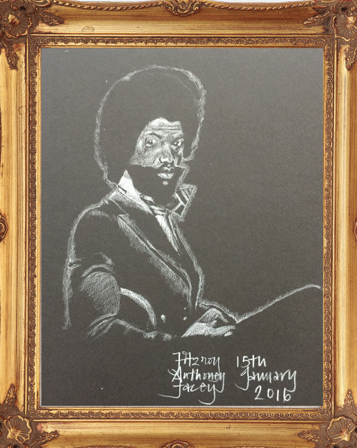 Fitzroy 15th
Anthoney January
Facey 2016